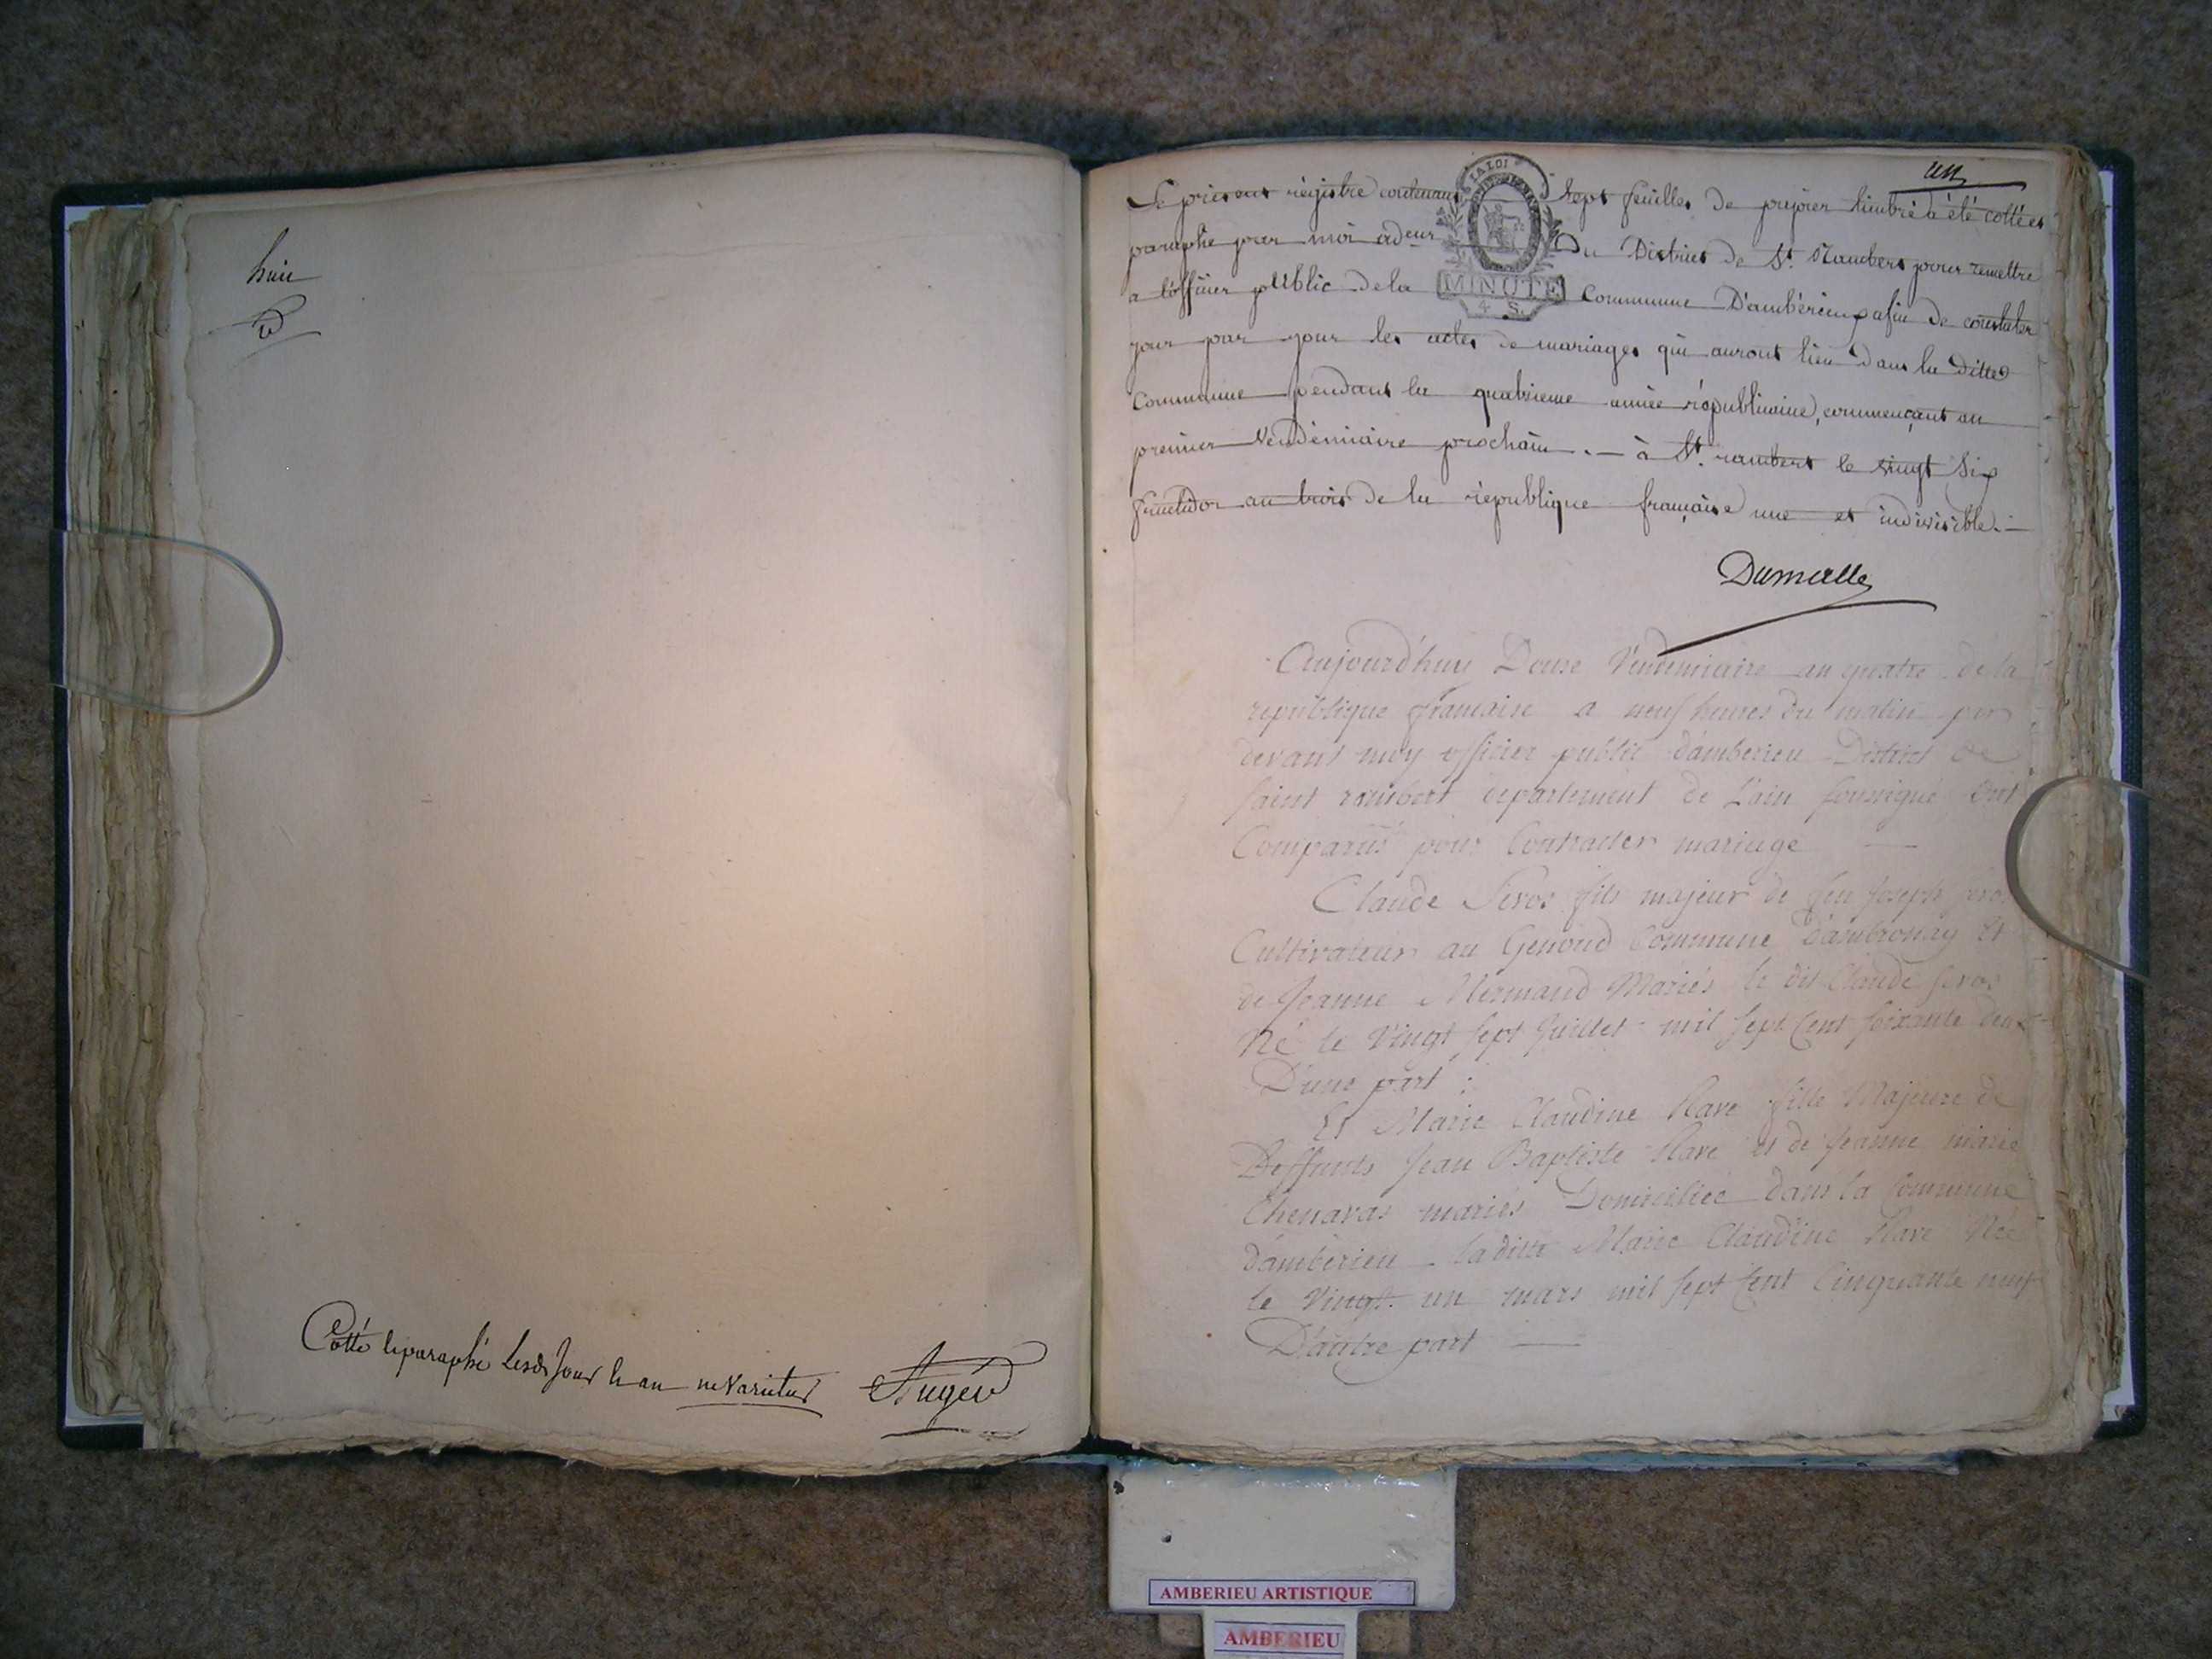 huit
Cotté et paraphé lesdis Jour et an ne varietur Auger
un
Le présent régistre contenant sept feuilles de papier timbré a été cotté et
LA LOI
paraphé par moi adeur Du District de St. Rambert pour remettre
a l'officier public de la Commune D'ambérieux afin de constater
MINUTE
4 S.
jour par jour les actes de mariages qui auront lieu dans la ditte
Commune pendant la quatrieme année républicaine, commençant au
premier Vendémiaire prochain. — à St. rambert le vingt six
fructidor an trois de la république française une et indivisible. —
Dumelle
Aujourd'huy Douse Vendemiaire an quatre de la
republique francaise a neuf heures du matin par
devant moy officier public d'amberieu District de
saint rambert departement de L'ain soussigné ont
Comparus pour Contracter mariage —
Claude Seros fils majeur de feu Joseph seros
Cultivateur au Genoud Commune d'ambronay Et
de Jeanne Mermand Mariés le dit Claude seros
Né le Vingt sept Juillet mil sept Cent soixante deux
D'une part :
Et Marie Claudine Rave fille Majeure de
Deffunts Jean Baptiste Rave et de Jeanne marie
Chenavas mariés Domiciliée dans la Commune
d'amberieu laditte Marie Claudine Rave Née
le Vingt un mars mil sept Cent Cinquante neuf
D'autre part —
AMBERIEU ARTISTIQUE
AMBERIEU